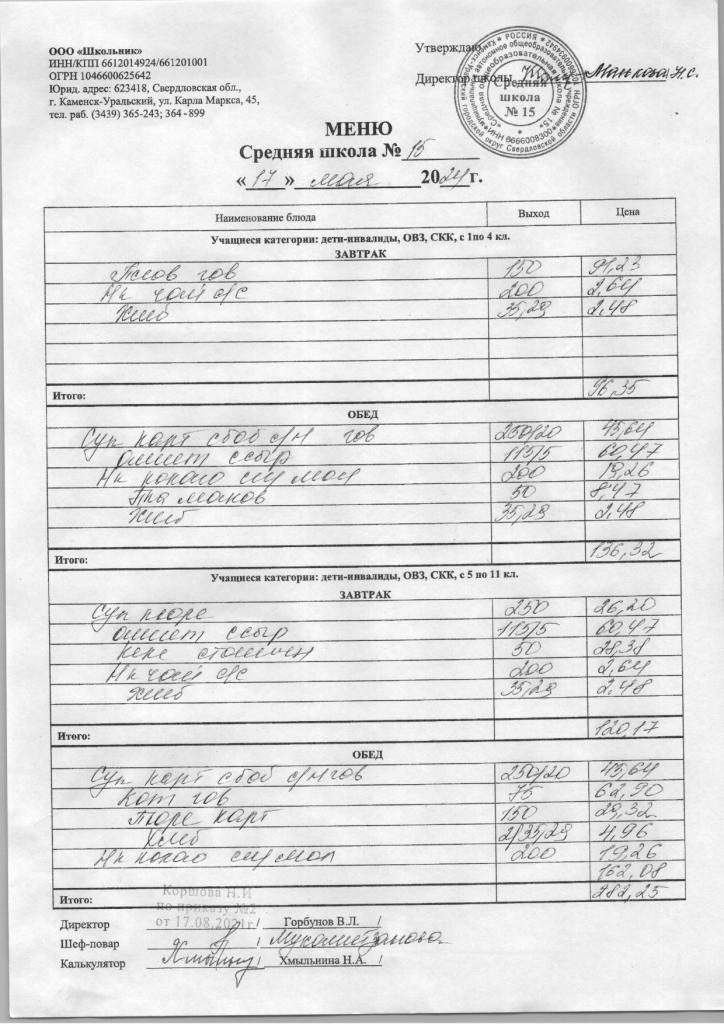 ООО «Школьник»
ИНН/КПП 6612014924/661201001
ОГРН 1046600625642
Юрид. адрес: 623418, Свердловская обл.,
г. Каменск-Уральский, ул. Карла Маркса, 45,
тел. раб. (3439) 365-243; 364 - 899
Утверждаю
Директор школы
Средняя школа № 15
МЕНЮ
Средняя школа № 15
« 17 » мая 2024 г.
Наименование блюда Выход Цена
Учащиеся категории: дети-инвалиды, ОВЗ, СКК, с 1по 4 кл.
ЗАВТРАК
Плов гов 150 91,23
Нк чай с/с 200 2,64
Хлеб 35,29 2,48
Итого: 96,35
ОБЕД
Суп карт сбоб с/м гов 250/20 45,64
омлет ссыр 115/5 60,47
Нк какао сгу мол 200 19,26
50 8,47
Хлеб 35,29 2,48
Итого: 136,32
Учащиеся категории: дети-инвалиды, ОВЗ, СКК, с 5 по 11 кл.
ЗАВТРАК
Суп пюре 250 26,20
омлет ссыр 115/5 60,47
кекс столичн 50 28,38
Нк чай с/с 200 2,64
Хлеб 35,29 2,48
Итого: 120,17
ОБЕД
Суп карт сбоб с/м гов 250/20 45,64
Кот гов 75 62,90
Пюре карт 150 29,32
Хлеб 2/35,29 4,96
Нк какао сгу мол 200 19,26
162,08
Итого: 282,25
Коршова Н.И
по приказу №2
от 17.08.2021г
Директор / Горбунов В.Л. /
Шеф-повар /
Калькулятор / Хмыльнина Н.А. /